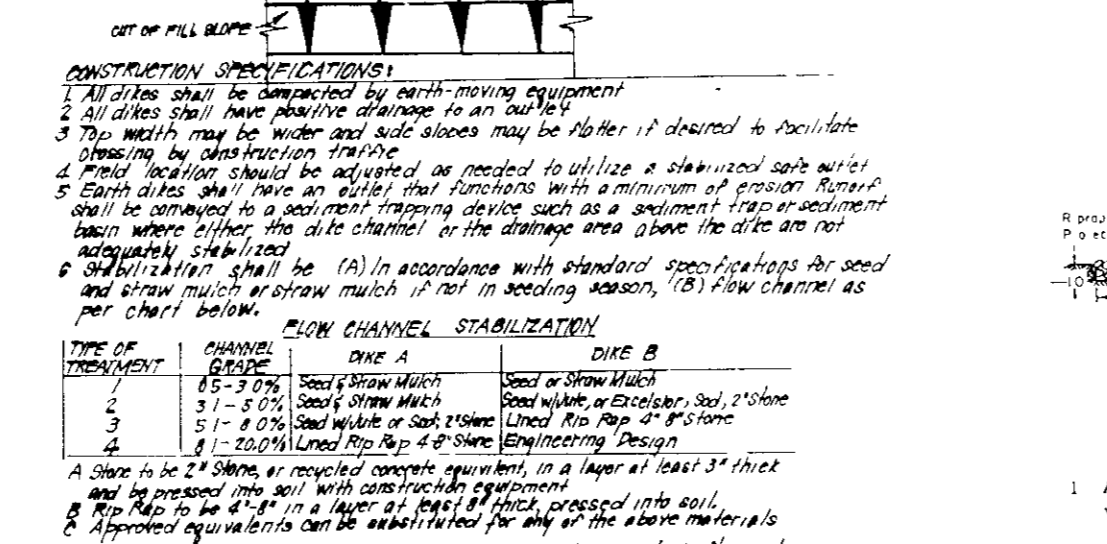 CUT OF FILL SLOPE
CONSTRUCTION SPECIFICATIONS:
1 All dikes shall be compacted by earth-moving equipment
2 All dikes shall have positive drainage to an outlet
3 Top width may be wider and side slopes may be flatter if desired to facilitate
crossing by construction traffic
4 Field location should be adjusted as needed to utilize a stabilized safe outlet
5 Earth dikes shall have an outlet that functions with a minimum of erosion Runoff
shall be conveyed to a sediment trapping device such as a sediment trap or sediment
basin where either the dike channel or the drainage area above the dike are not
adequately stabilized
6 Stabilization shall be (A) In accordance with standard specifications for seed
and straw mulch or straw mulch if not in seeding season, (B) flow channel as
per chart below.
FLOW CHANNEL STABILIZATION
TYPE OF TREATMENT CHANNEL GRADE DIKE A DIKE B
1 05-30% Seed & Straw Mulch Seed or Straw Mulch
2 31-50% Seed & Straw Mulch Seed w/Jute, or Excelsior, Sod, 2" Stone
3 51-80% Seed w/Jute or Sod, 2" Stone Lined Rip Rap 4"-8" Stone
4 81-20.0% Lined Rip Rap 4-8" Stone Engineering Design
A Stone to be 2" Stone, or recycled concrete equivilent, in a layer at least 3" thick
and be pressed into soil with construction equipment
B Rip Rap to be 4"-8" in a layer at least 8" thick, pressed into soil.
C Approved equivalents can be substituted for any of the above materials
R prap
P o ec
10
1